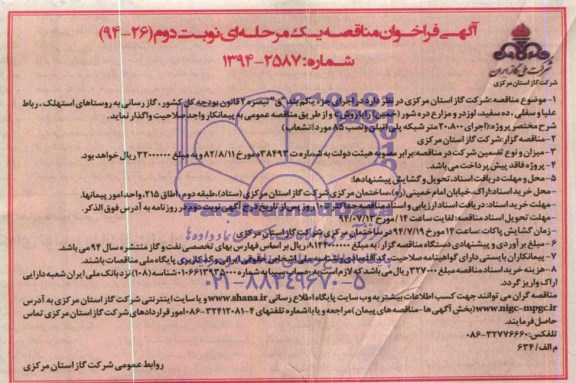 آگهی فراخوان مناقصه یک مرحله‌ای نوبت دوم (۲۶-۹۴)
شماره: ۲۵۸۷-۱۳۹۴
شرکت ملی گاز ایران
شرکت گاز استان مرکزی
۱- موضوع مناقصه: شرکت گاز استان مرکزی در نظر دارد در اجرای جزء یکم بند "ق" تبصره ۲ قانون بودجه کل کشور، گاز رسانی به روستاهای استهلک، رباط
علیا و سفلی، ده سفید، لوزدر و مزارع دره شور (خمین) را با روش و از طریق مناقصه عمومی به پیمانکار واجد صلاحیت واگذار نماید.
شرح مختصر پروژه: (اجرای ۲۰,۸۰۰ متر شبکه پلی اتیلن و نصب ۸۵ مورد انشعاب)
۲- مناقصه گزار: شرکت گاز استان مرکزی
۳- میزان و نوع تضمین شرکت در مناقصه: برابر مصوبه هیئت دولت به شماره ت ۳۸۴۹۳ مورخ ۸۲/۸/۱۱ و به مبلغ ۳۲۰۰۰۰۰۰۰ ریال خواهد بود.
۴- پروژه فاقد پیش پرداخت می باشد.
۵- محل و مهلت دریافت اسناد، تحویل و گشایش پیشنهادها:
- محل خرید اسناد: اراک، خیابان امام خمینی (ره)، ساختمان مرکزی شرکت گاز استان مرکزی (ستاد)، طبقه دوم، اطاق ۲۱۵، واحد امور پیمانها.
- مهلت خرید اسناد: دریافت اسناد ارزیابی و اسناد مناقصه حداکثر تا ۱۰ روز پس از تاریخ فوق آگهی نوبت دوم در روزنامه به آدرس فوق الذکر.
- مهلت تحویل اسناد مناقصه: لغایت ساعت ۱۴ مورخ ۹۴/۰۷/۱۳
- زمان گشایش پاکات: ساعت ۱۴ مورخ ۹۴/۷/۱۹ در ساختمان مرکزی شرکت گاز استان مرکزی
۶- مبلغ برآوردی و پیشنهادی دستگاه مناقصه گزار: به مبلغ ریال بر اساس فهارس بهای تخصصی نفت و گاز منتشره سال ۹۴ می باشد.
۷- پیمانکاران بایستی دارای گواهینامه صلاحیت، کد اقتصادی و شناسه ملی اشخاص حقوقی ایرانی و کد کاربری پایگاه ملی مناقصات باشند.
۸- هزینه خرید اسناد مناقصه مبلغ ۳۲۷۰۰۰ ریال می باشد که لازم است به حساب سیبا به شماره شناسه (۱۰۸) نزد بانک ملی ایران شعبه دارایی
اراک واریز گردد.
مناقصه گران می توانند جهت کسب اطلاعات بیشتر به وب سایت پایگاه اطلاع رسانی www.shana.ir و یا سایت اینترنتی شرکت گاز استان مرکزی به آدرس
www.nigc-mpgc.ir (بخش آگهی ها- مناقصه های پیمان) مراجعه و یا با شماره تلفنهای ۴-۳۲۴۱۲۰۸۱-۰۸۶ امور قراردادهای شرکت گاز استان مرکزی تماس
حاصل فرمایند.
تلفکس: ۳۲۷۷۶۶۶۰-۰۸۶
م الف/ ۶۳۴
روابط عمومی شرکت گاز استان مرکزی
ParsNamadData
۰۲۱-۸۸۳۴۹۶۷۰-۵